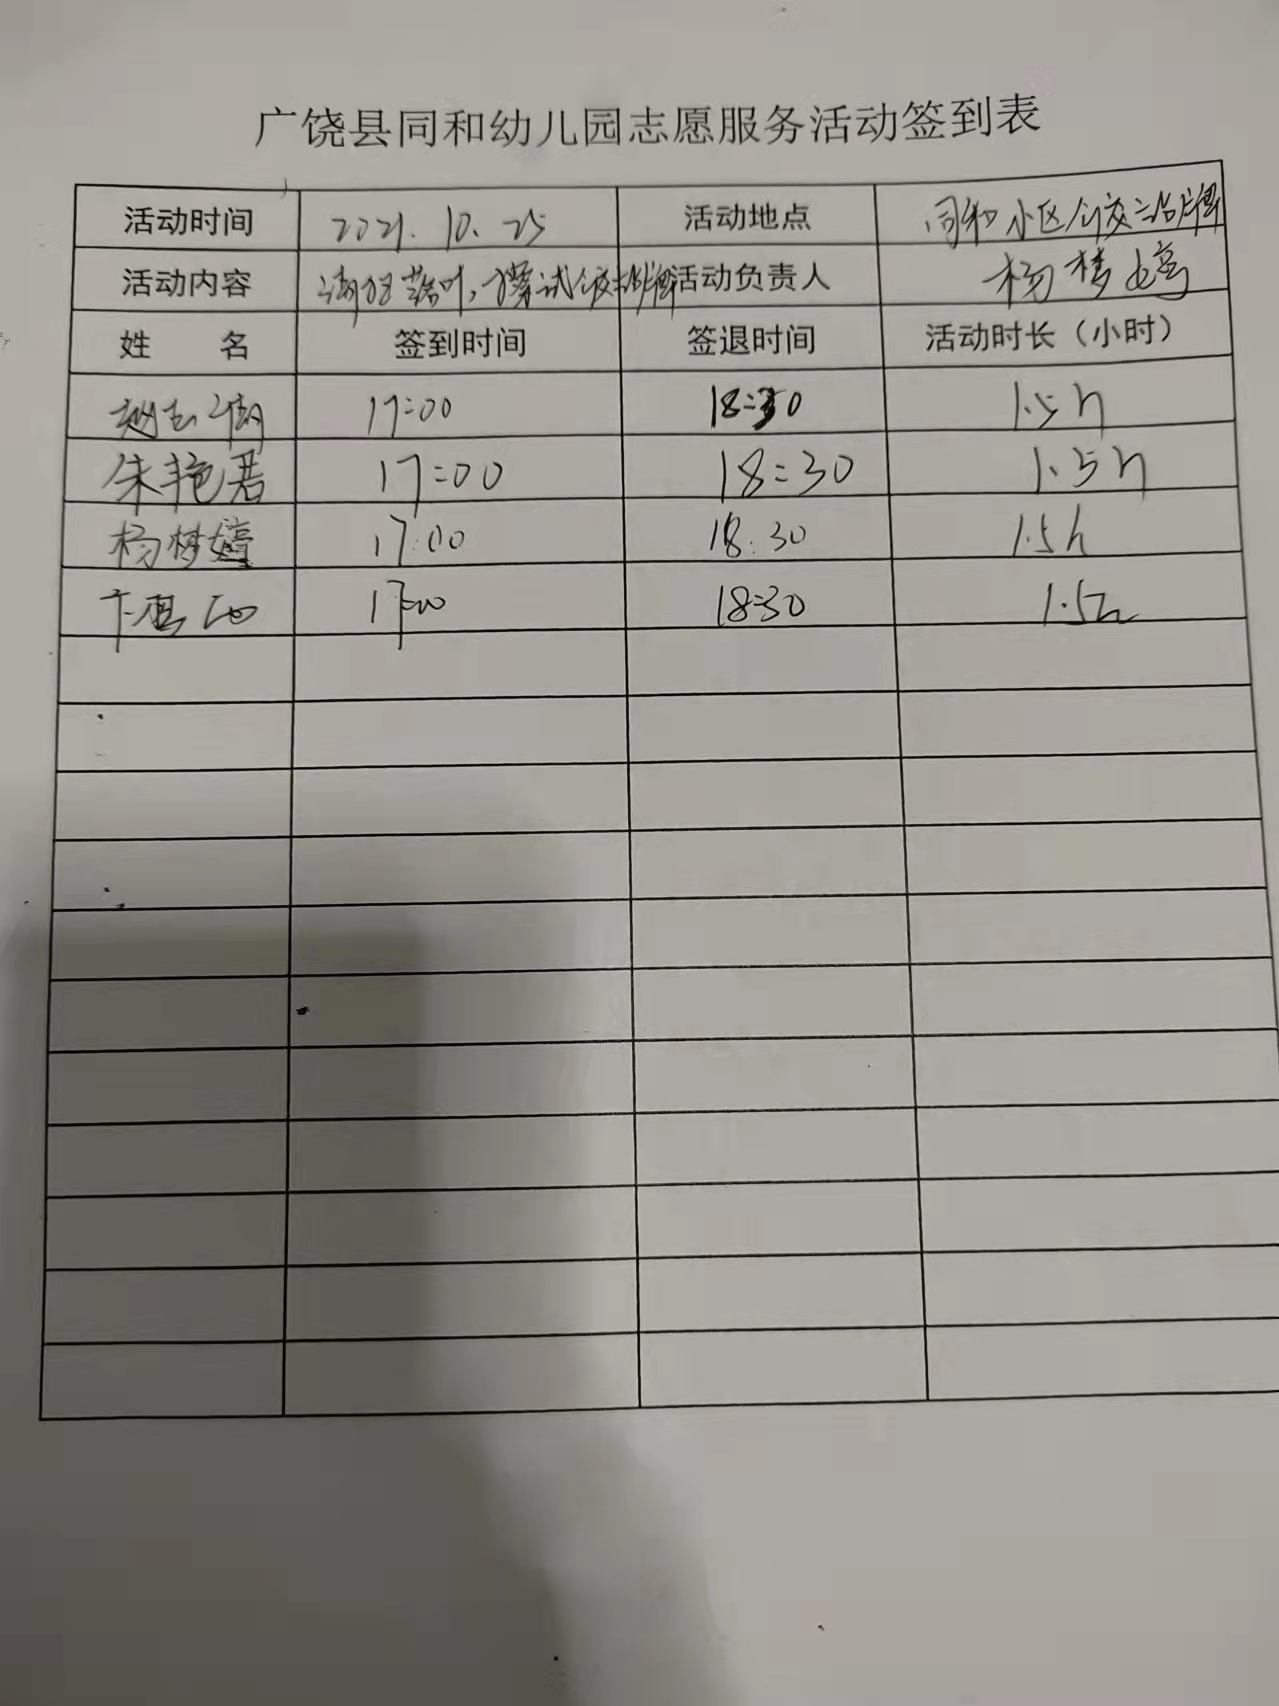 广饶县同和幼儿园志愿服务活动签到表
活动时间 2021.10.25 活动地点 同和小区公交站牌
活动内容 清扫落叶，擦拭公交站牌 活动负责人 杨梦婷
姓 名 签到时间 签退时间 活动时长（小时）
赵玉倩 17:00 18:30 1.5h
朱艳君 17:00 18:30 1.5h
杨梦婷 17:00 18:30 1.5h
17:00 18:30 1.5h